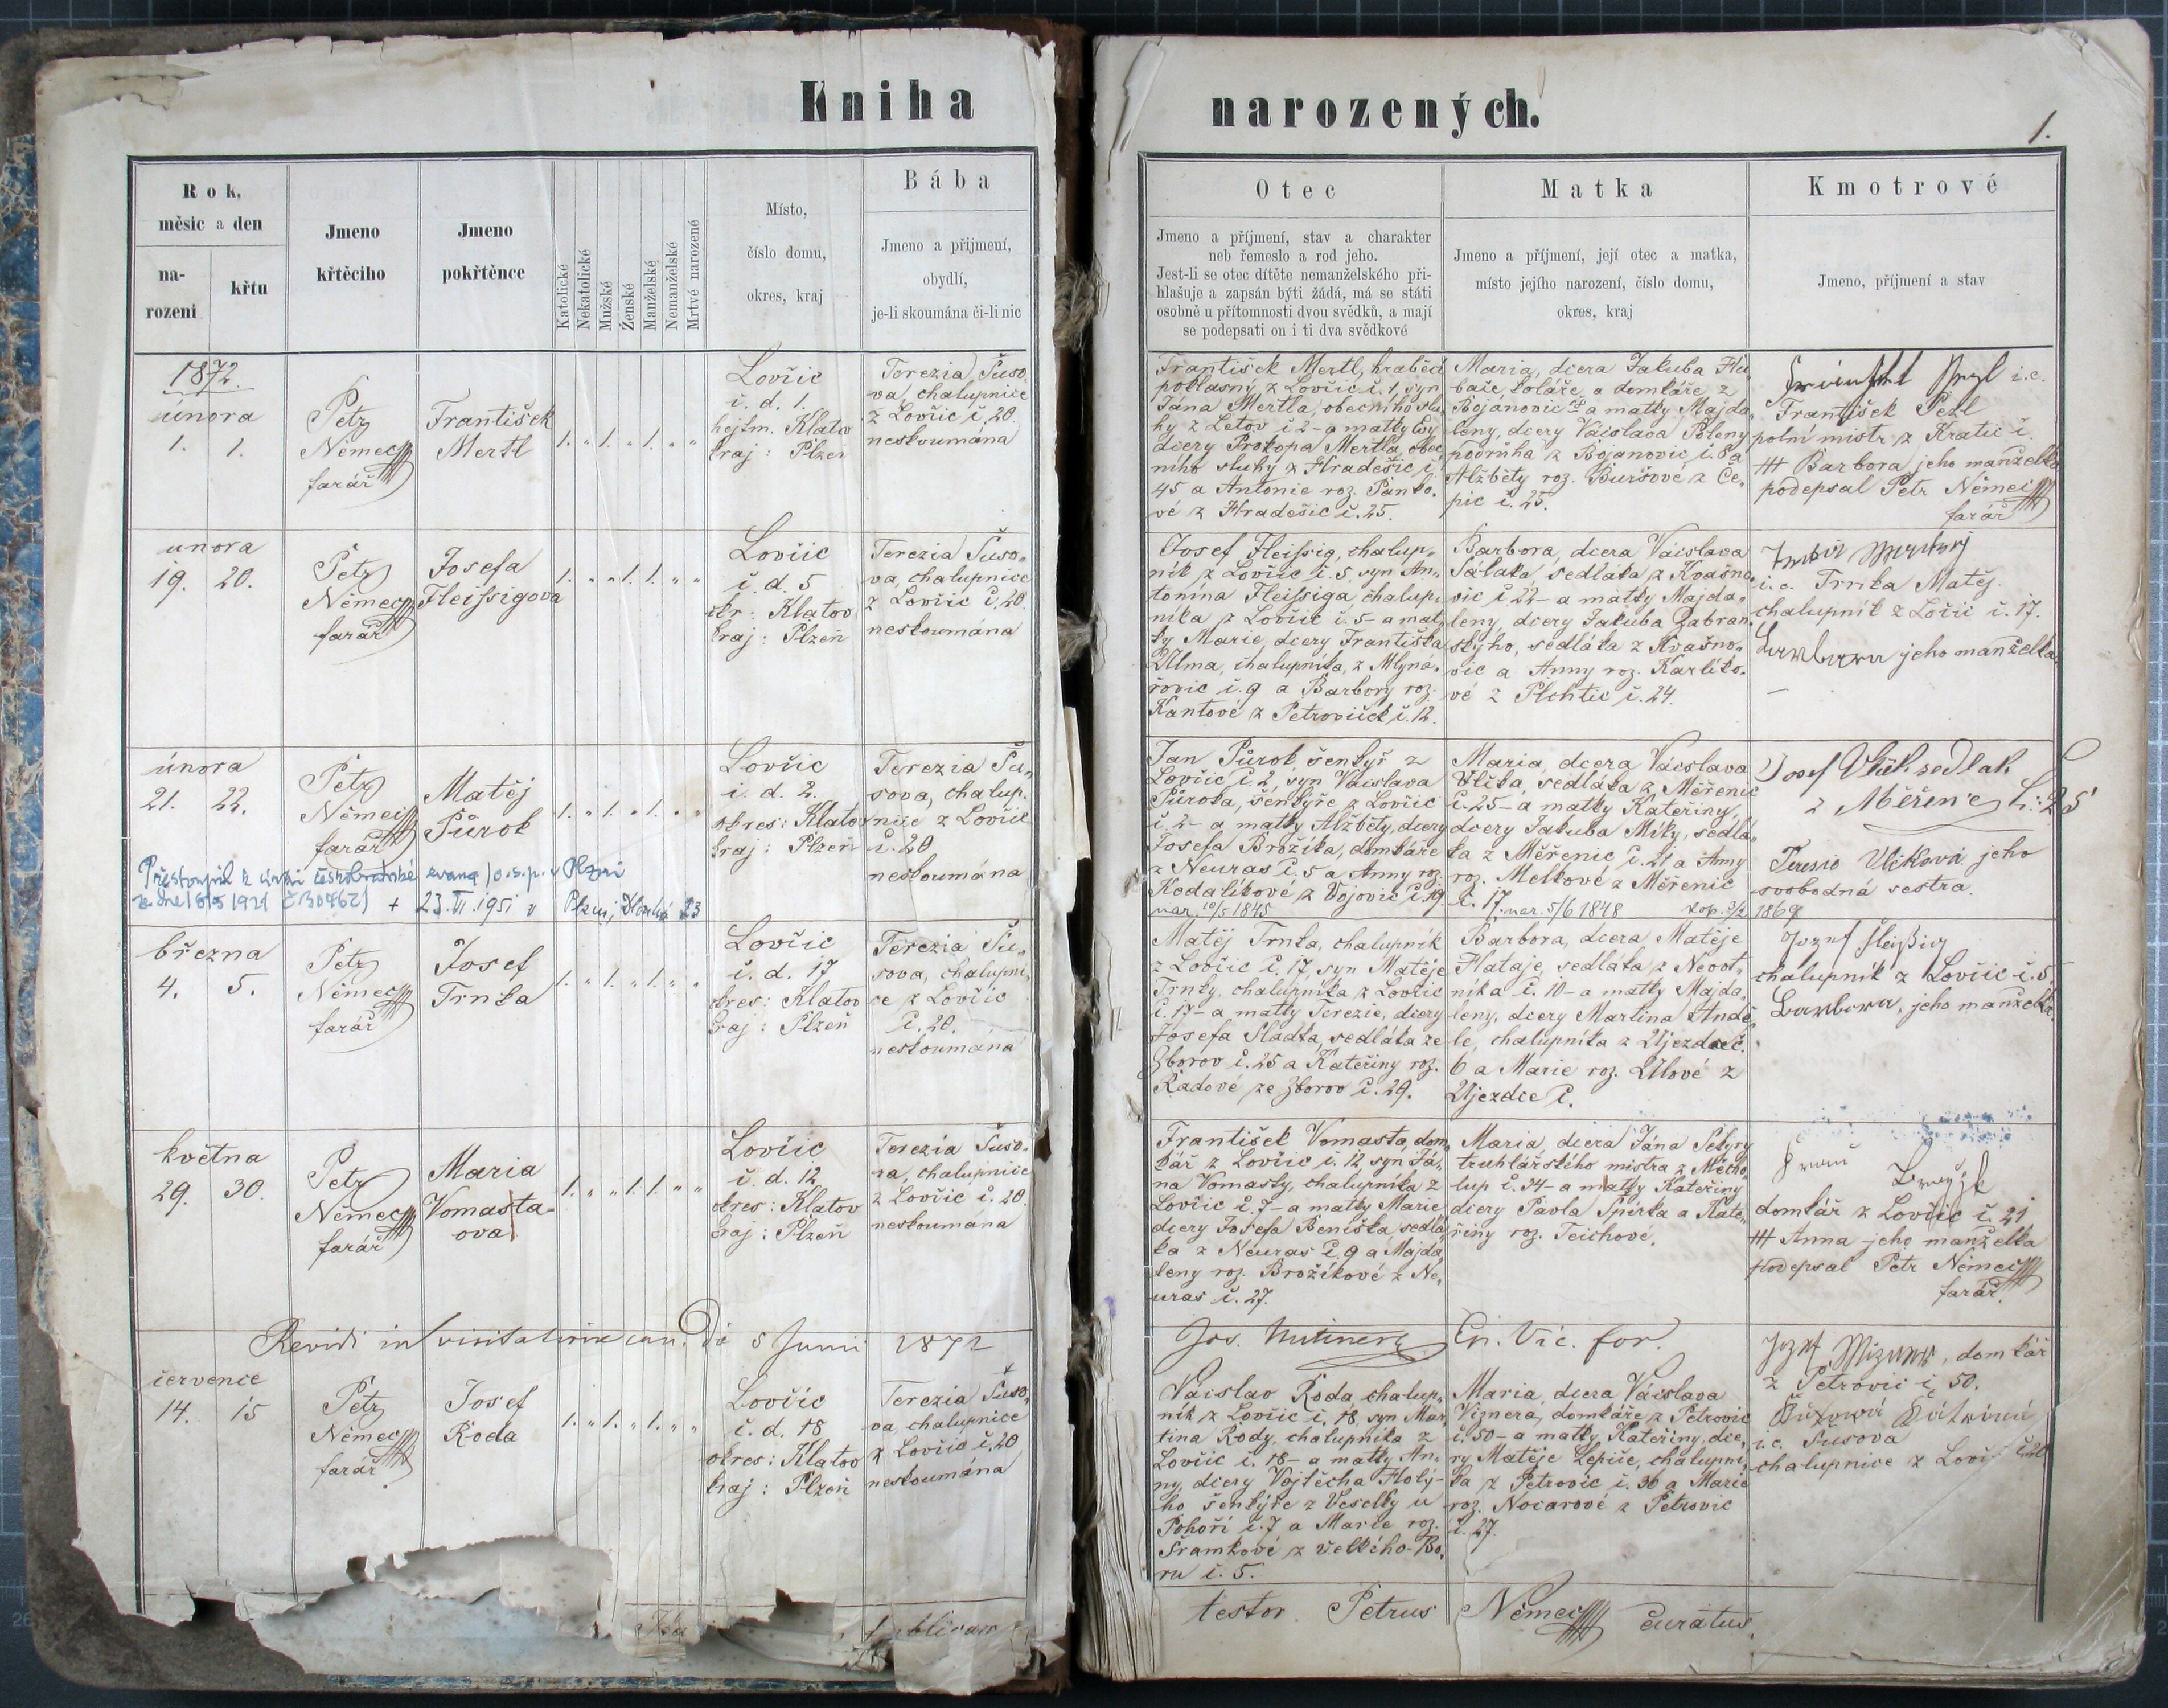 Kniha
narozených.
1.
Rok,
měsic a den
na-
rozeni
křtu
Jmeno
křtěcího
Jmeno
pokřtěnce
Katolické
Nekatolické
Mužské
Ženské
Manželské
Nemanželské
Mrtvé narozené
Místo,
číslo domu,
okres, kraj
Bába
Jmeno a přijmení,
obydlí,
je-li skoumána či-li nic
Otec
Jmeno a příjmení, stav a charakter
neb řemeslo a rod jeho.
Jest-li se otec dítěte nemanželského při-
hlašuje a zapsán býti žádá, má se státi
osobně u přítomnosti dvou svědků, a mají
se podepsati on i ti dva svědkové
Matka
Jmeno a příjmení, její otec a matka,
místo jejího narození, číslo domu,
okres, kraj
Kmotrové
Jmeno, příjmení a stav
1872.
února
1. 1.
Petr
Němec
farář
František
Mertl
1. „ 1. „ 1. „ „
Lovčic
č. d. 1.
hejtm. Klatov
kraj: Plzeň
Terezia Šuso-
va, chalupnice
z Lovčic č. 20.
neskoumána
František Mertl, hraběcí
poklasný z Lovčic č. 1, syn
Jána Mertla, obecního slu-
hy z Letov č 2 - a matky
dcery Prokopa Mertla, obec
ního sluhy z Hradešic č.
45 a Antonie roz. Panko-
vé z Hradešic č. 25.
Maria, dcera Jakuba Hlu
bače, koláře a domkáře z
Bojanovic a matky Majda-
leny, dcery Václava Poleny
podruha z Bojanovic č. 8 a
Alžběty roz. Buršové z Če-
pic č. 25.
i.e.
František Pezl
polní mistr z Kratic č.
+++ Barbora jeho manželka
podepsal Petr Němec
farář
unora
19. 20.
Petr
Němec
farář
Josefa
Fleissigova
1. „ „ 1. 1. „ „
Lovčic
č. d. 5
okr: Klatov
kraj: Plzeň
Terezia Šuso-
va, chalupnice
z Lovčic č. 20.
neskoumána
Josef Fleissig, chalup-
ník z Lovčic č. 5, syn An-
tonína Fleissiga chalup-
níka z Lovčic č. 5 - a mat-
ky Marie, dcery Františka
Ulma, chalupníka, z Mlyna-
řovic č. 9 a Barbory roz.
Kantové z Petroviček č. 12.
Barbora, dcera Václava
Sálaka, sedláka z Kvašno-
vic č 22 - a matky Majda-
leny, dcery Jakuba Zabran-
skyho, sedláka z Kvašno-
vic a Anny roz. Karliko-
vé z Plchtic č. 24.
i.e. Trnka Matěj
chalupník zLočic č. 17.
Barbara jeho manželka.
února
21. 22.
Petr
Němec
farář
Matěj
Půrok
1. „ 1. „ 1. „ „
Lovčic
č. d. 2.
okres: Klatov
kraj: Plzeň
Terezia Šu-
sova, chalup-
nice z Lovčic
č. 20
neskoumána
Přestoupil k církvi českobratrské evang. v Plzni
ze dne 1921 + 23. VI. 1951 v Plzni, Dlouhá 23
Jan Půrok, šenkýř z
Lovčic č. 2, syn Václava
Půroka, šenkýře z Lovčic
č. 2 - a matky Alžběty, dcery
Josefa Brožíka, domkáře
z Neuras č. 5 a Anny roz.
Kodalíkové z Vojovic č. 19.
nar. 10/5 1845
Maria, dcera Václava
Vlčka, sedláka z Měřenic
č. 25 - a matky Kateřiny,
dcery Jakuba Míky, sedlá-
ka z Měřenic č. 21 a Anny
roz. Melkové z Měřenic
č. 17. nar. 5/6 1848 kop. 3/2 1869
Josef Vlček sedlak
z Měřenic č: 25
Teresie Vlčková jeho
svobodná sestra.
března
4. 5.
Petr
Němec
farář
Josef
Trnka
1. „ 1. „ 1. „ „
Lovčic
č. d. 17
okres: Klatov
kraj: Plzeň
Terezia Šu-
sova, chalupni-
ce z Lovčic
č. 20.
neskoumána
Matěj Trnka, chalupník
z Lovčic č. 17, syn Matěje
Trnky, chalupníka z Lovčic
č. 17 - a matky Terezie, dcery
Josefa Sladka, sedláka ze
Zborov č. 25 a Kateřiny roz.
Radové ze Zborov č. 29.
Barbora, dcera Matěje
Flataje, sedláka z Neost-
níka č. 10 - a matky Majda-
leny, dcery Martina Andě
le, chalupníka z Ujezdce č.
6 a Marie roz. Ulové z
Ujezdce č.
Jozef Fleißig
chalupník z Lovčic č. 5.
Barbora, jeho manželka.
května
29. 30.
Petr
Němec
farář
Maria
Vomasta-
ova
1. „ „ 1. 1. „ „
Lovčic
č. d. 12
okres: Klatov
kraj: Plzeň
Terezia Šuso-
va, chalupnice
z Lovčic č. 20.
neskoumána
František Vomasta, dom-
kář z Lovčic č. 12, syn Já-
na Vomasty, chalupníka z
Lovčic č. 7 - a matky Marie
dcery Josefa Beniška, sedlá-
ka z Neuras č. 9 a Majda
leny roz. Brožíkové z Ne-
uras č. 27.
Maria, dcera Jána Sekyry
truhlářského mistra z Mecho-
lup č. 34 - a matky Kateřiny
dcery Pavla Spirka a Kate-
řiny roz. Teichove.
domkář z Lovčic č. 21
+++ Anna jeho manželka
podepsal Petr Němec
farář.
Revidi in visitatione can. die 5 Junii 1872
Jos. Ep. Vic. for.
července
14. 15
Petr
Němec
farář
Josef
Roda
1. „ 1. „ 1. „ „
Lovčic
č. d. 18
okres: Klatov
kraj: Plzeň
Terezia Šuso-
va chalupnice
z Lovčic č. 20
neskoumána
Václav Roda, chalup-
ník z Lovčic č. 18, syn Mar-
tina Rody, chalupníka z
Lovčic č. 18 - a matky An-
ny, dcery Vojtěcha Holý-
ho šenkýře z Veselky u
Pohoří č. 7 a Marie roz.
Šramkové z Velkého-Bo-
ru č. 5.
Maria, dcera Václava
Viznera, domkáře z Petrovic
č. 50 - a matky Kateřiny, dce-
ry Matěje Lepiče, chalupní-
ka z Petrovic č. 36 a Marie
roz. Nocarové z Petrovic
č. 27.
Jozef Wizner, domkář
z Petrovic č. 50.
i.e. Šusova
chalupnice z Lovč č 20
testor Petrus Němec curatus.